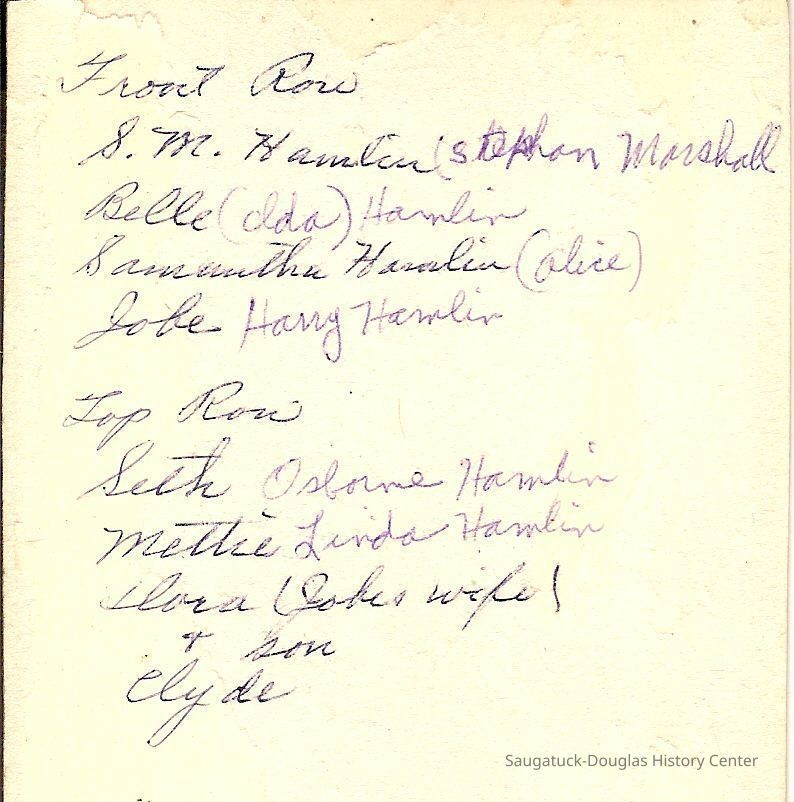 Front Row
S. M. Hamlin (Stephan Marshall
Belle (Ida) Hamlin
Samantha Hamlin (Alice)
Jobe Harry Hamlin
Top Row
Seth Osborne Hamlin
Mettie Linda Hamlin
Flora (Jobes wife)
+ son
Clyde
Saugatuck-Douglas History Center